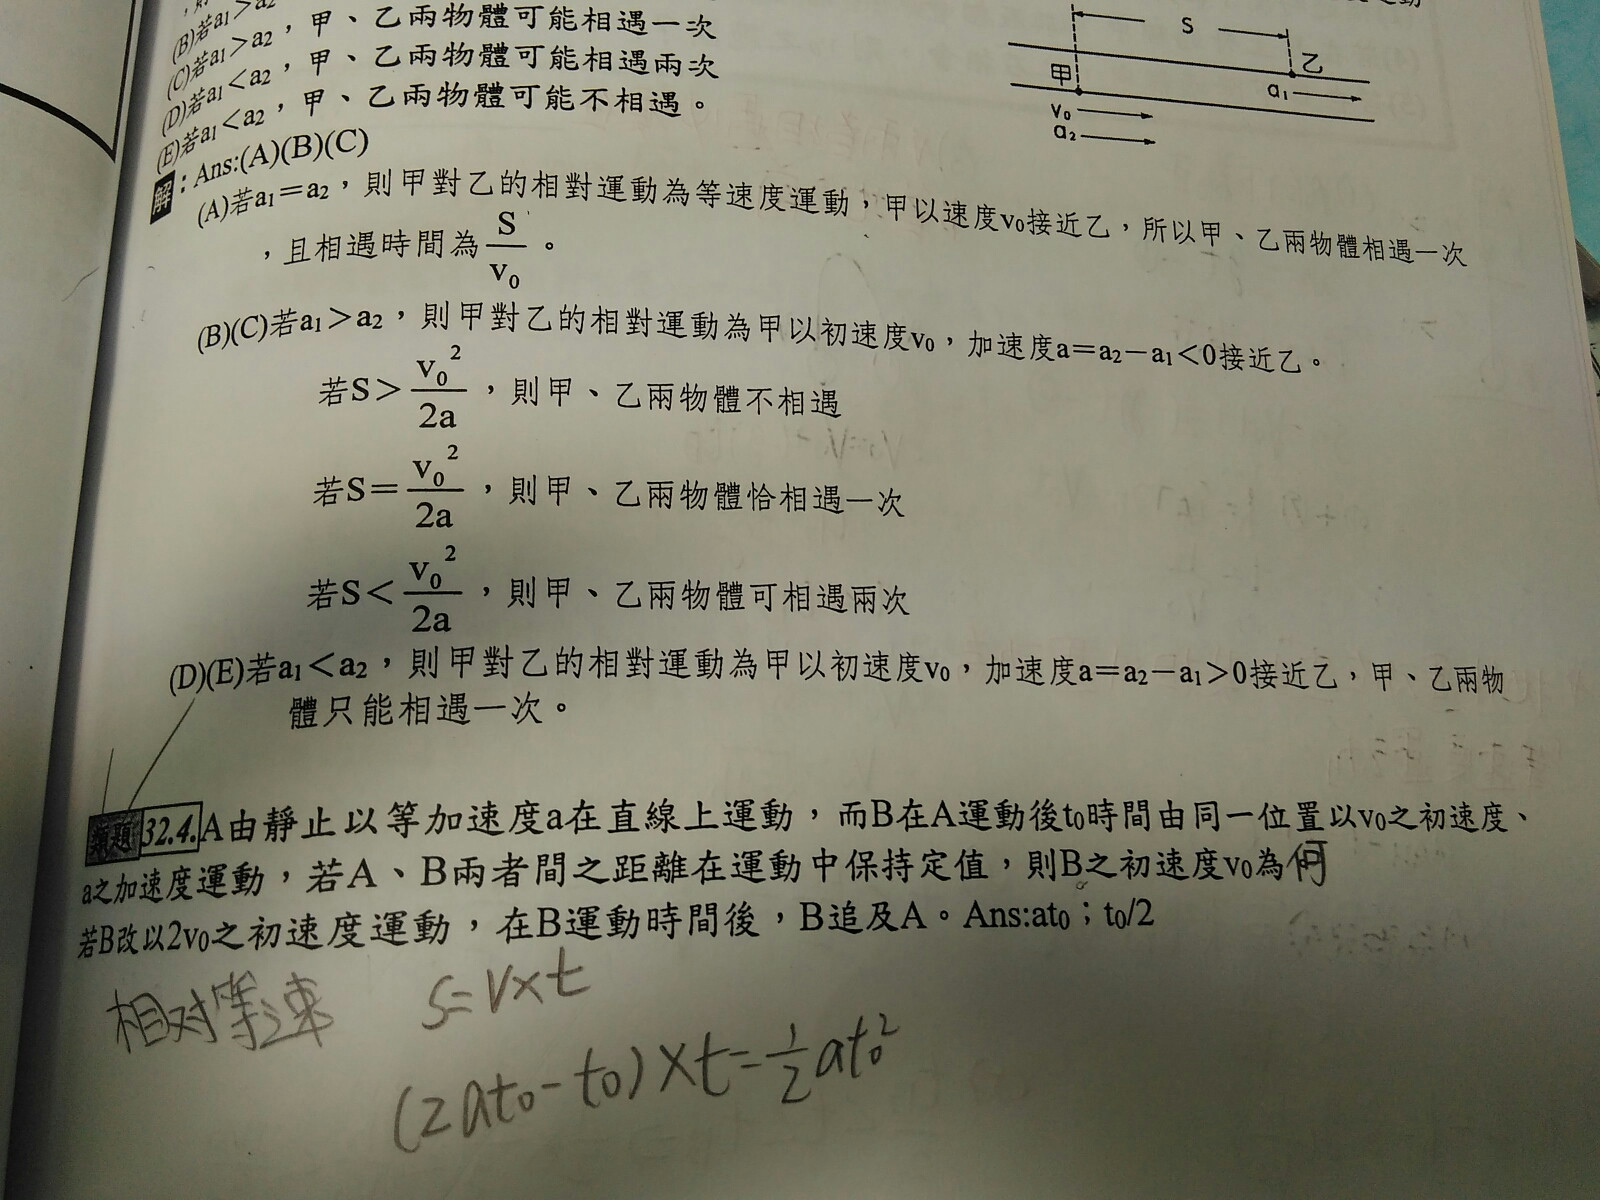 (B)若a₁>a₂，甲、乙兩物體可能相遇一次
(C)若a₁>a₂，甲、乙兩物體可能相遇兩次
(D)若a₁<a₂，甲、乙兩物體可能不相遇。
(E)若a₁<a₂，
S
甲
乙
a₁
v₀
a₂
解：Ans:(A)(B)(C)
(A)若a₁=a₂，則甲對乙的相對運動為等速度運動，甲以速度v₀接近乙，所以甲、乙兩物體相遇一次
，且相遇時間為S/v₀。
(B)(C)若a₁>a₂，則甲對乙的相對運動為甲以初速度v₀，加速度a=a₂−a₁<0接近乙。
若S>v₀²/2a，則甲、乙兩物體不相遇
若S=v₀²/2a，則甲、乙兩物體恰相遇一次
若S<v₀²/2a，則甲、乙兩物體可相遇兩次
(D)(E)若a₁<a₂，則甲對乙的相對運動為甲以初速度v₀，加速度a=a₂−a₁>0接近乙，甲、乙兩物
體只能相遇一次。
類題 32.4.A由靜止以等加速度a在直線上運動，而B在A運動後t₀時間由同一位置以v₀之初速度、
a之加速度運動，若A、B兩者間之距離在運動中保持定值，則B之初速度v₀為何
若B改以2v₀之初速度運動，在B運動時間後，B追及A。Ans:at₀；t₀/2
相对等速 S=V×t
(2at₀-t₀)×t=½at₀²